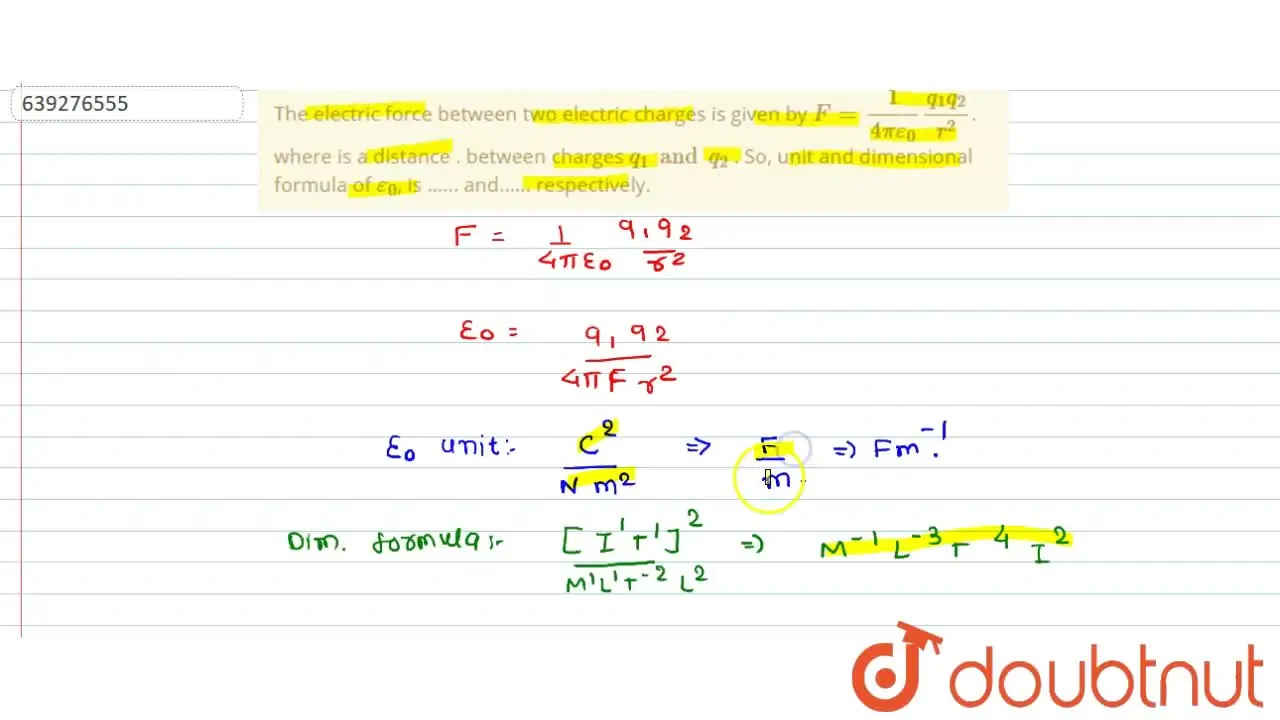 639276555
The electric force between two electric charges is given by F = \frac{1}{4πε₀} \frac{q₁q₂}{r²}.
where is a distance . between charges q₁ and q₂ . So, unit and dimensional
formula of ε₀, is ...... and...... respectively.
F = \frac{1}{4πε₀} \frac{q₁q₂}{r²}
ε₀ = \frac{q₁q₂}{4πF r²}
ε₀ unit:- \frac{C²}{N m²} ⇒ \frac{F}{m} ⇒ Fm⁻¹.
Dim. formula:- \frac{[I¹T¹]²}{M¹L¹T⁻² L²} ⇒ M⁻¹ L⁻³ T⁴ I²
doubtnut